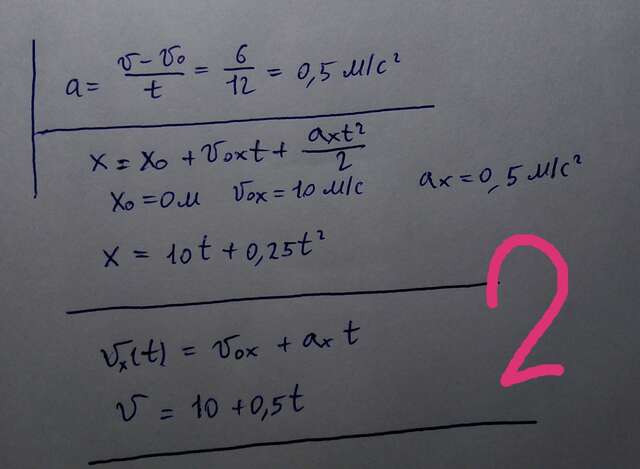 a = (v - v₀)/t = 6/12 = 0,5 м/с²
x = x₀ + v₀ₓt + aₓt²/2
x₀ = 0м v₀ₓ = 10 м/с aₓ = 0,5 м/с²
x = 10t + 0,25t²
2
vₓ(t) = v₀ₓ + aₓ t
v = 10 + 0,5t